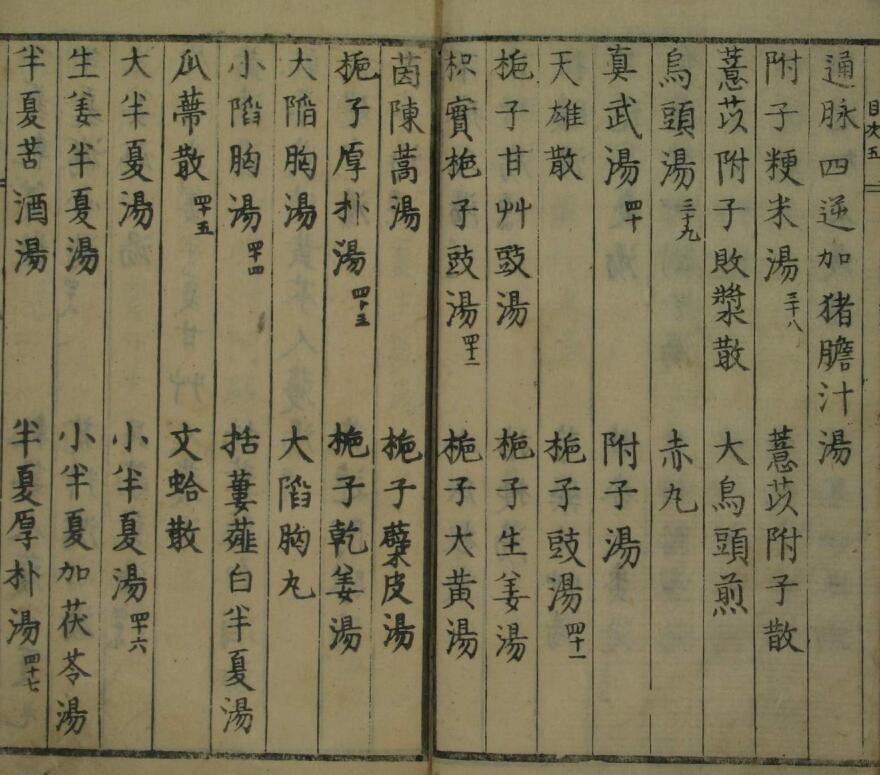 目次五
通脉四逆加猪膽汁湯
附子粳米湯 三十八 薏苡附子散
薏苡附子敗漿散 大烏頭煎
烏頭湯 三十九 赤丸
真武湯 四十 附子湯
天雄散 梔子豉湯 四十一
梔子甘艸豉湯 梔子生姜湯
枳實梔子豉湯 四十二 梔子大黄湯
茵陳蒿湯 梔子蘗皮湯
梔子厚朴湯 四十三 梔子乾姜湯
大陷胸湯 大陷胸丸
小陷胸湯 四十四 括蔞薤白半夏湯
瓜蔕散 四十五 文蛤散
大半夏湯 小半夏湯 四十六
生姜半夏湯 小半夏加茯苓湯
半夏苦酒湯 半夏厚朴湯 四十七